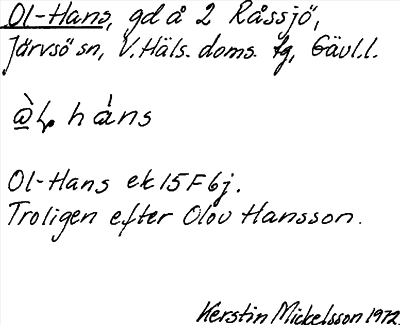 Ol-Hans, gd å 2 Råssjö,
Järvsö sn, V. Häls. doms. tg, Gävl.l.
hàns
Ol-Hans ek 15 F 6j.
Troligen efter Olov Hansson.
Kerstin Mickelsson 1972.